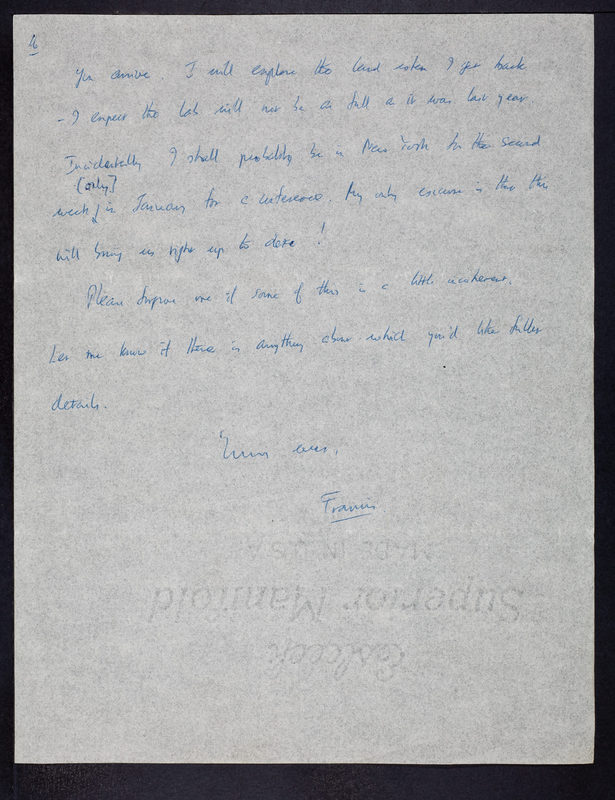 you arrive. I will explore the land when I get back
- I expect the lab will not be as full as it was last year.
Incidentally I shall probably be in New York for the second
[only]
week in January for a conference. My only excuse is that this
will bring us right up to date!
Please forgive me if some of this is a little incoherent.
Let me know if there is anything about which you'd like fuller
details.
Yours ever,
Francis
MADE IN U.S.A.
Superior Manifold
Eaton's